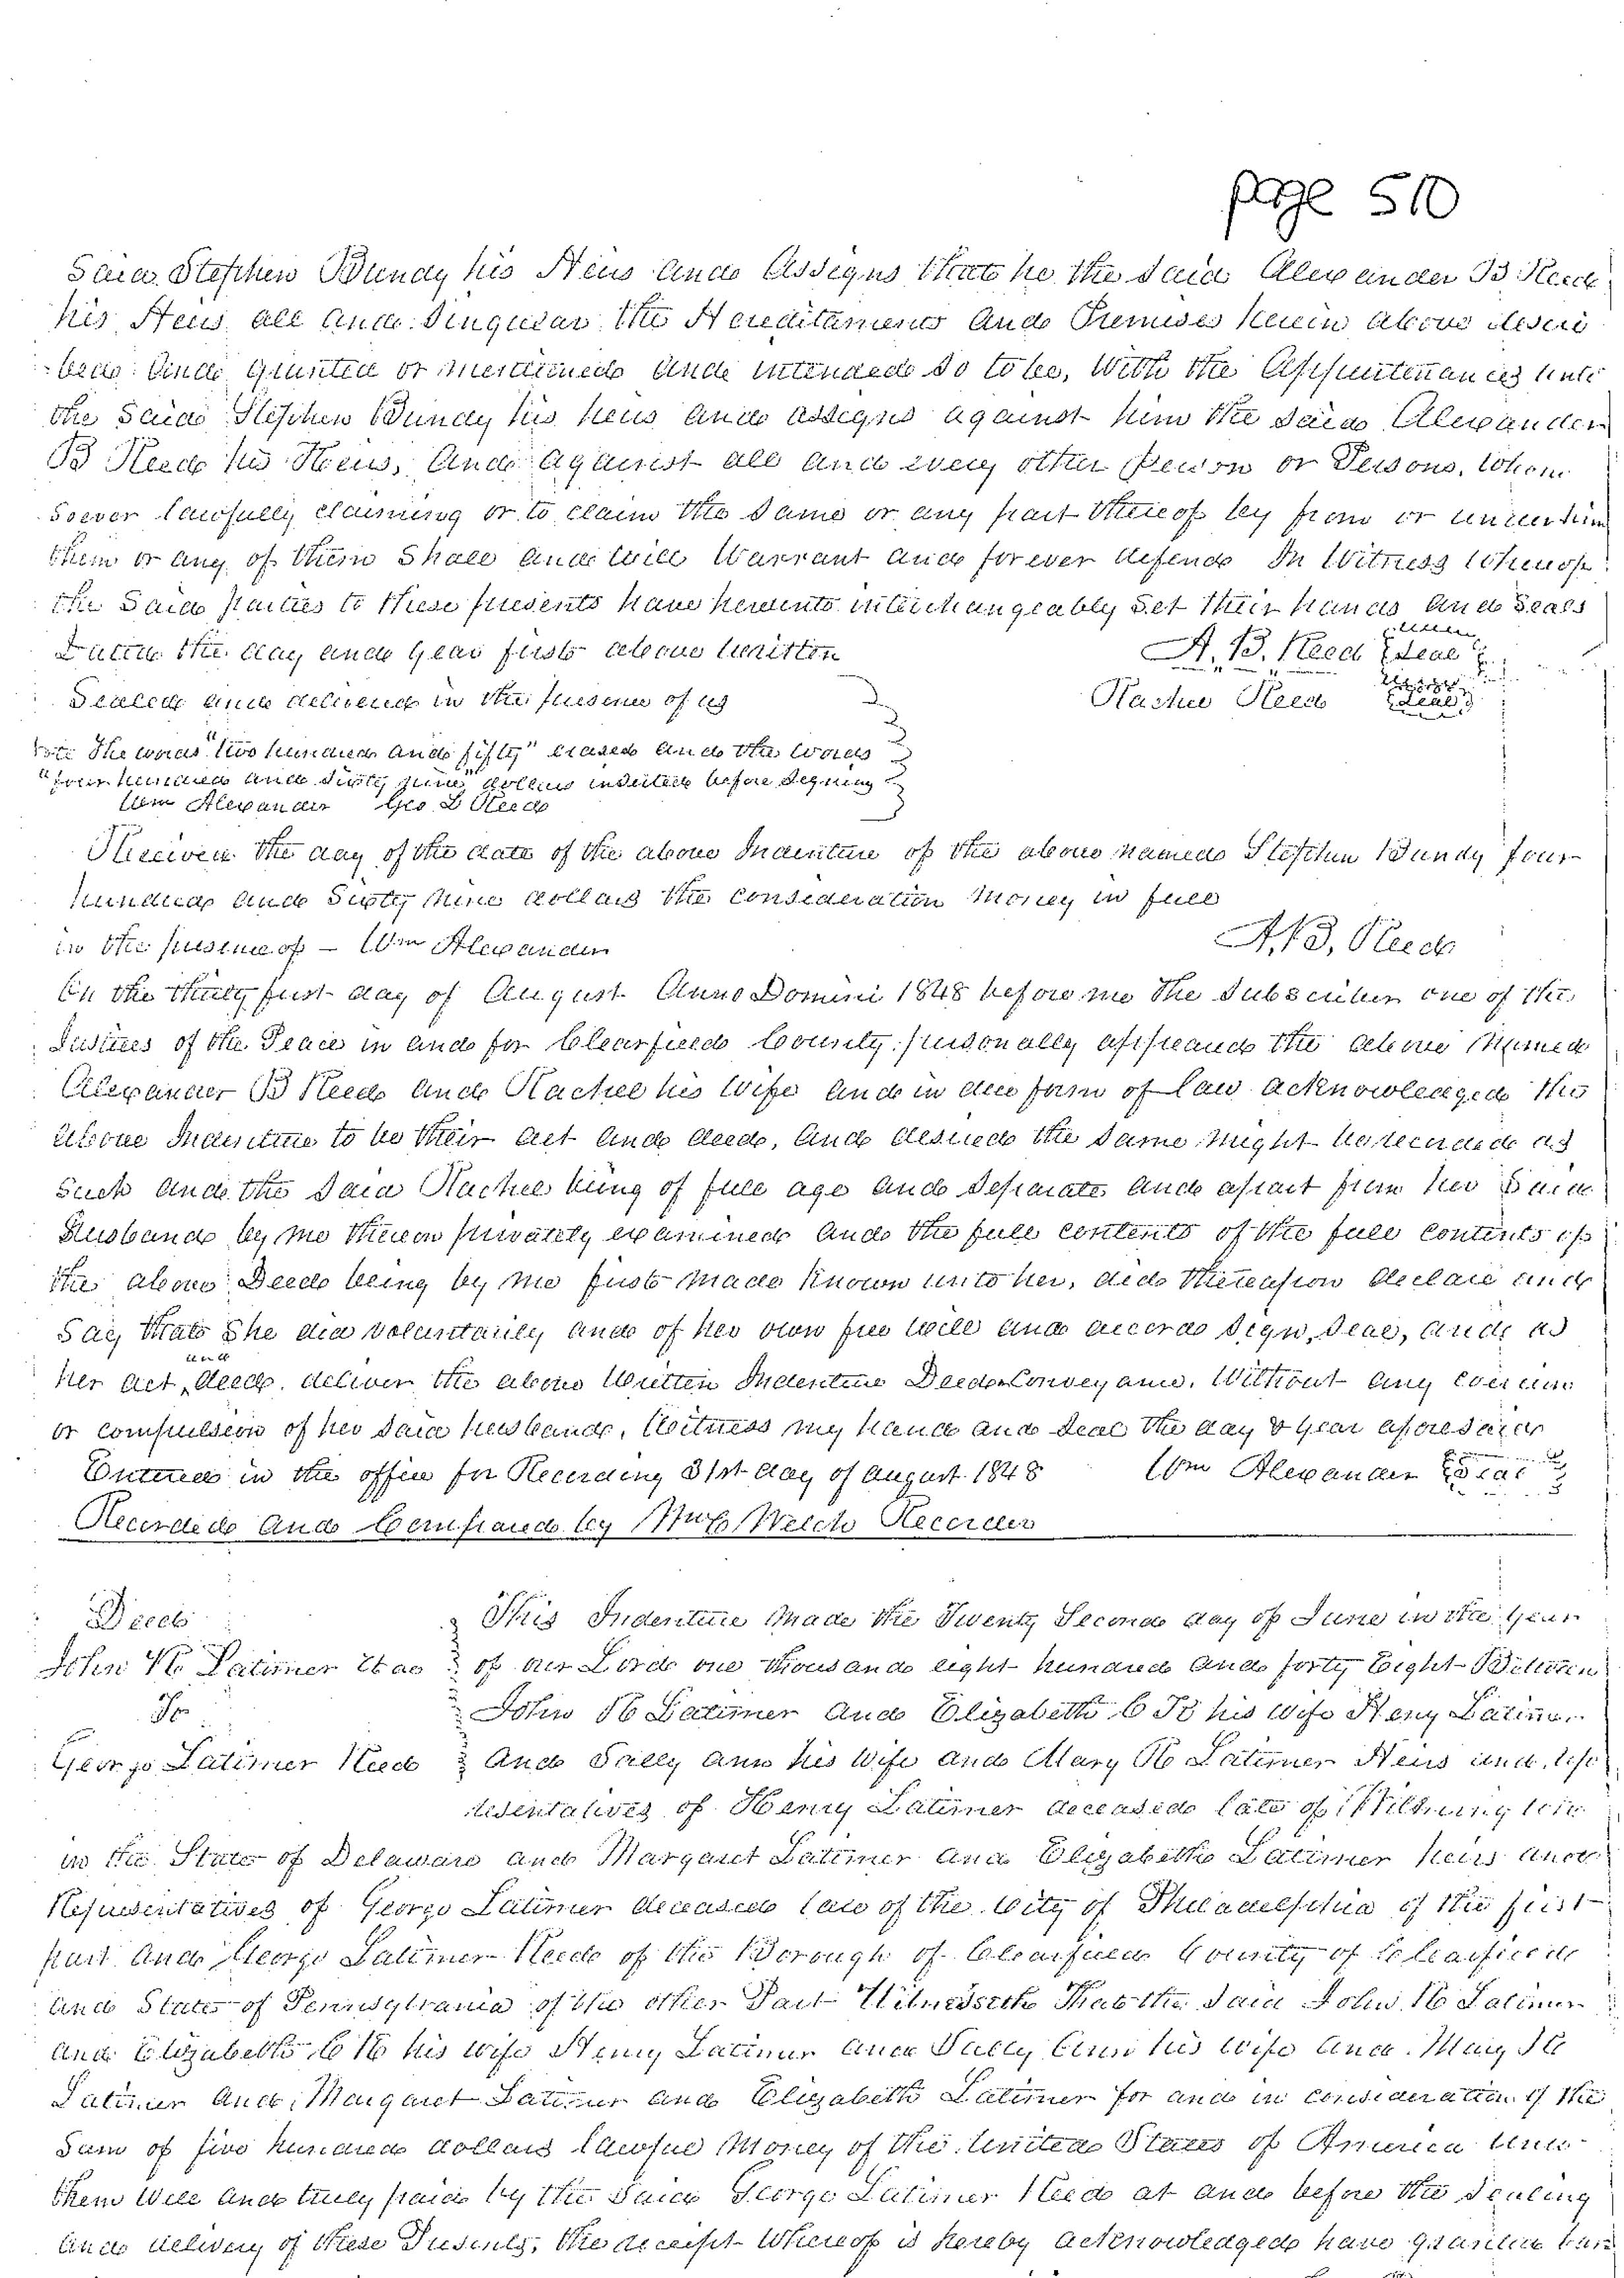 page 510
Said Stephen Bundy his Heirs and Assigns that he the said Alexander B Reed
his Heirs all and Singular the Hereditaments and Premises herein above descri
-bed and granted or mentioned and intended so to be, with the Appurtenances unto
the Said Stephen Bundy his heirs and assigns against him the said Alexander
B Reed his Heirs, and against all and every other Person or Persons, whom
soever lawfully claiming or to claim the same or any part thereof by from or under him
them or any of them Shall and will Warrant and forever defend In Witness Whereof
the Said parties to these presents have hereunto interchangeably set their hands and Seals
Dated the day and year first above written A. B. Reed Seal
Sealed and delivered in the presence of us Rachel Reed Seal
Note The words "two hundred and fifty" erased and the words
"four hundred and sixty nine" dollars inserted before signing
Wm Alexander Geo L Reed
Received the day of the date of the above Indenture of the above named Stephen Bundy four
hundred and Sixty Nine dollars the consideration Money in full
in the presence of - Wm Alexander A, B, Reed
On the thirty first day of August Anno Domini 1848 before me the Subscriber one of the
Justices of the Peace in and for Clearfield County personally appeared the above Named
Alexander B Reed and Rachel his Wife and in due form of Law acknowledged the
above Indenture to be their act and deed, and desired the same might be recorded as
such and the said Rachel being of full age and separate and apart from her said
Husband by me thereon privately examined and the full contents of the full contents of
the above Deed being by me first made known unto her, did thereupon declare and
Say that She did voluntarily and of her own free will and accord sign, seal, and as
her act, and deed, deliver the above Written Indenture Deed or Conveyance, Without any coercion
or compulsion of her said husband, Witness my hand and seal the day & year aforesaid
Entered in the office for Recording 31st day of August 1848 Wm Alexander Seal
Recorded and Compared by Welch Recorder
Deed This Indenture Made the Twenty Second day of June in the year
John R Latimer et al of our Lord one thousand eight hundred and forty Eight Between
To John R Latimer and Elizabeth his wife Henry Latimer
George Latimer Reed And Sally Ann his Wife and Mary R Latimer Heirs and rep
resentatives of Henry Latimer deceased late of Wilmington
in the State of Delaware and Margaret Latimer and Elizabeth Latimer heirs and
Representatives of George Latimer deceased late of the City of Philadelphia of the first
part and George Latimer Reed of the Borough of Clearfield County of Clearfield
and State of Pennsylvania of the other Part Witnesseth That the said John R Latimer
and Elizabeth his wife Henry Latimer and Sally Ann his wife and Mary R
Latimer and, Margaret Latimer and Elizabeth Latimer for and in consideration of the
Sum of five hundred dollars lawful Money of the United States of America unto
them Well and truly paid by the said George Latimer Reed at and before the Sealing
and delivery of these Presents, the receipt Whereof is hereby acknowledged have granted bar